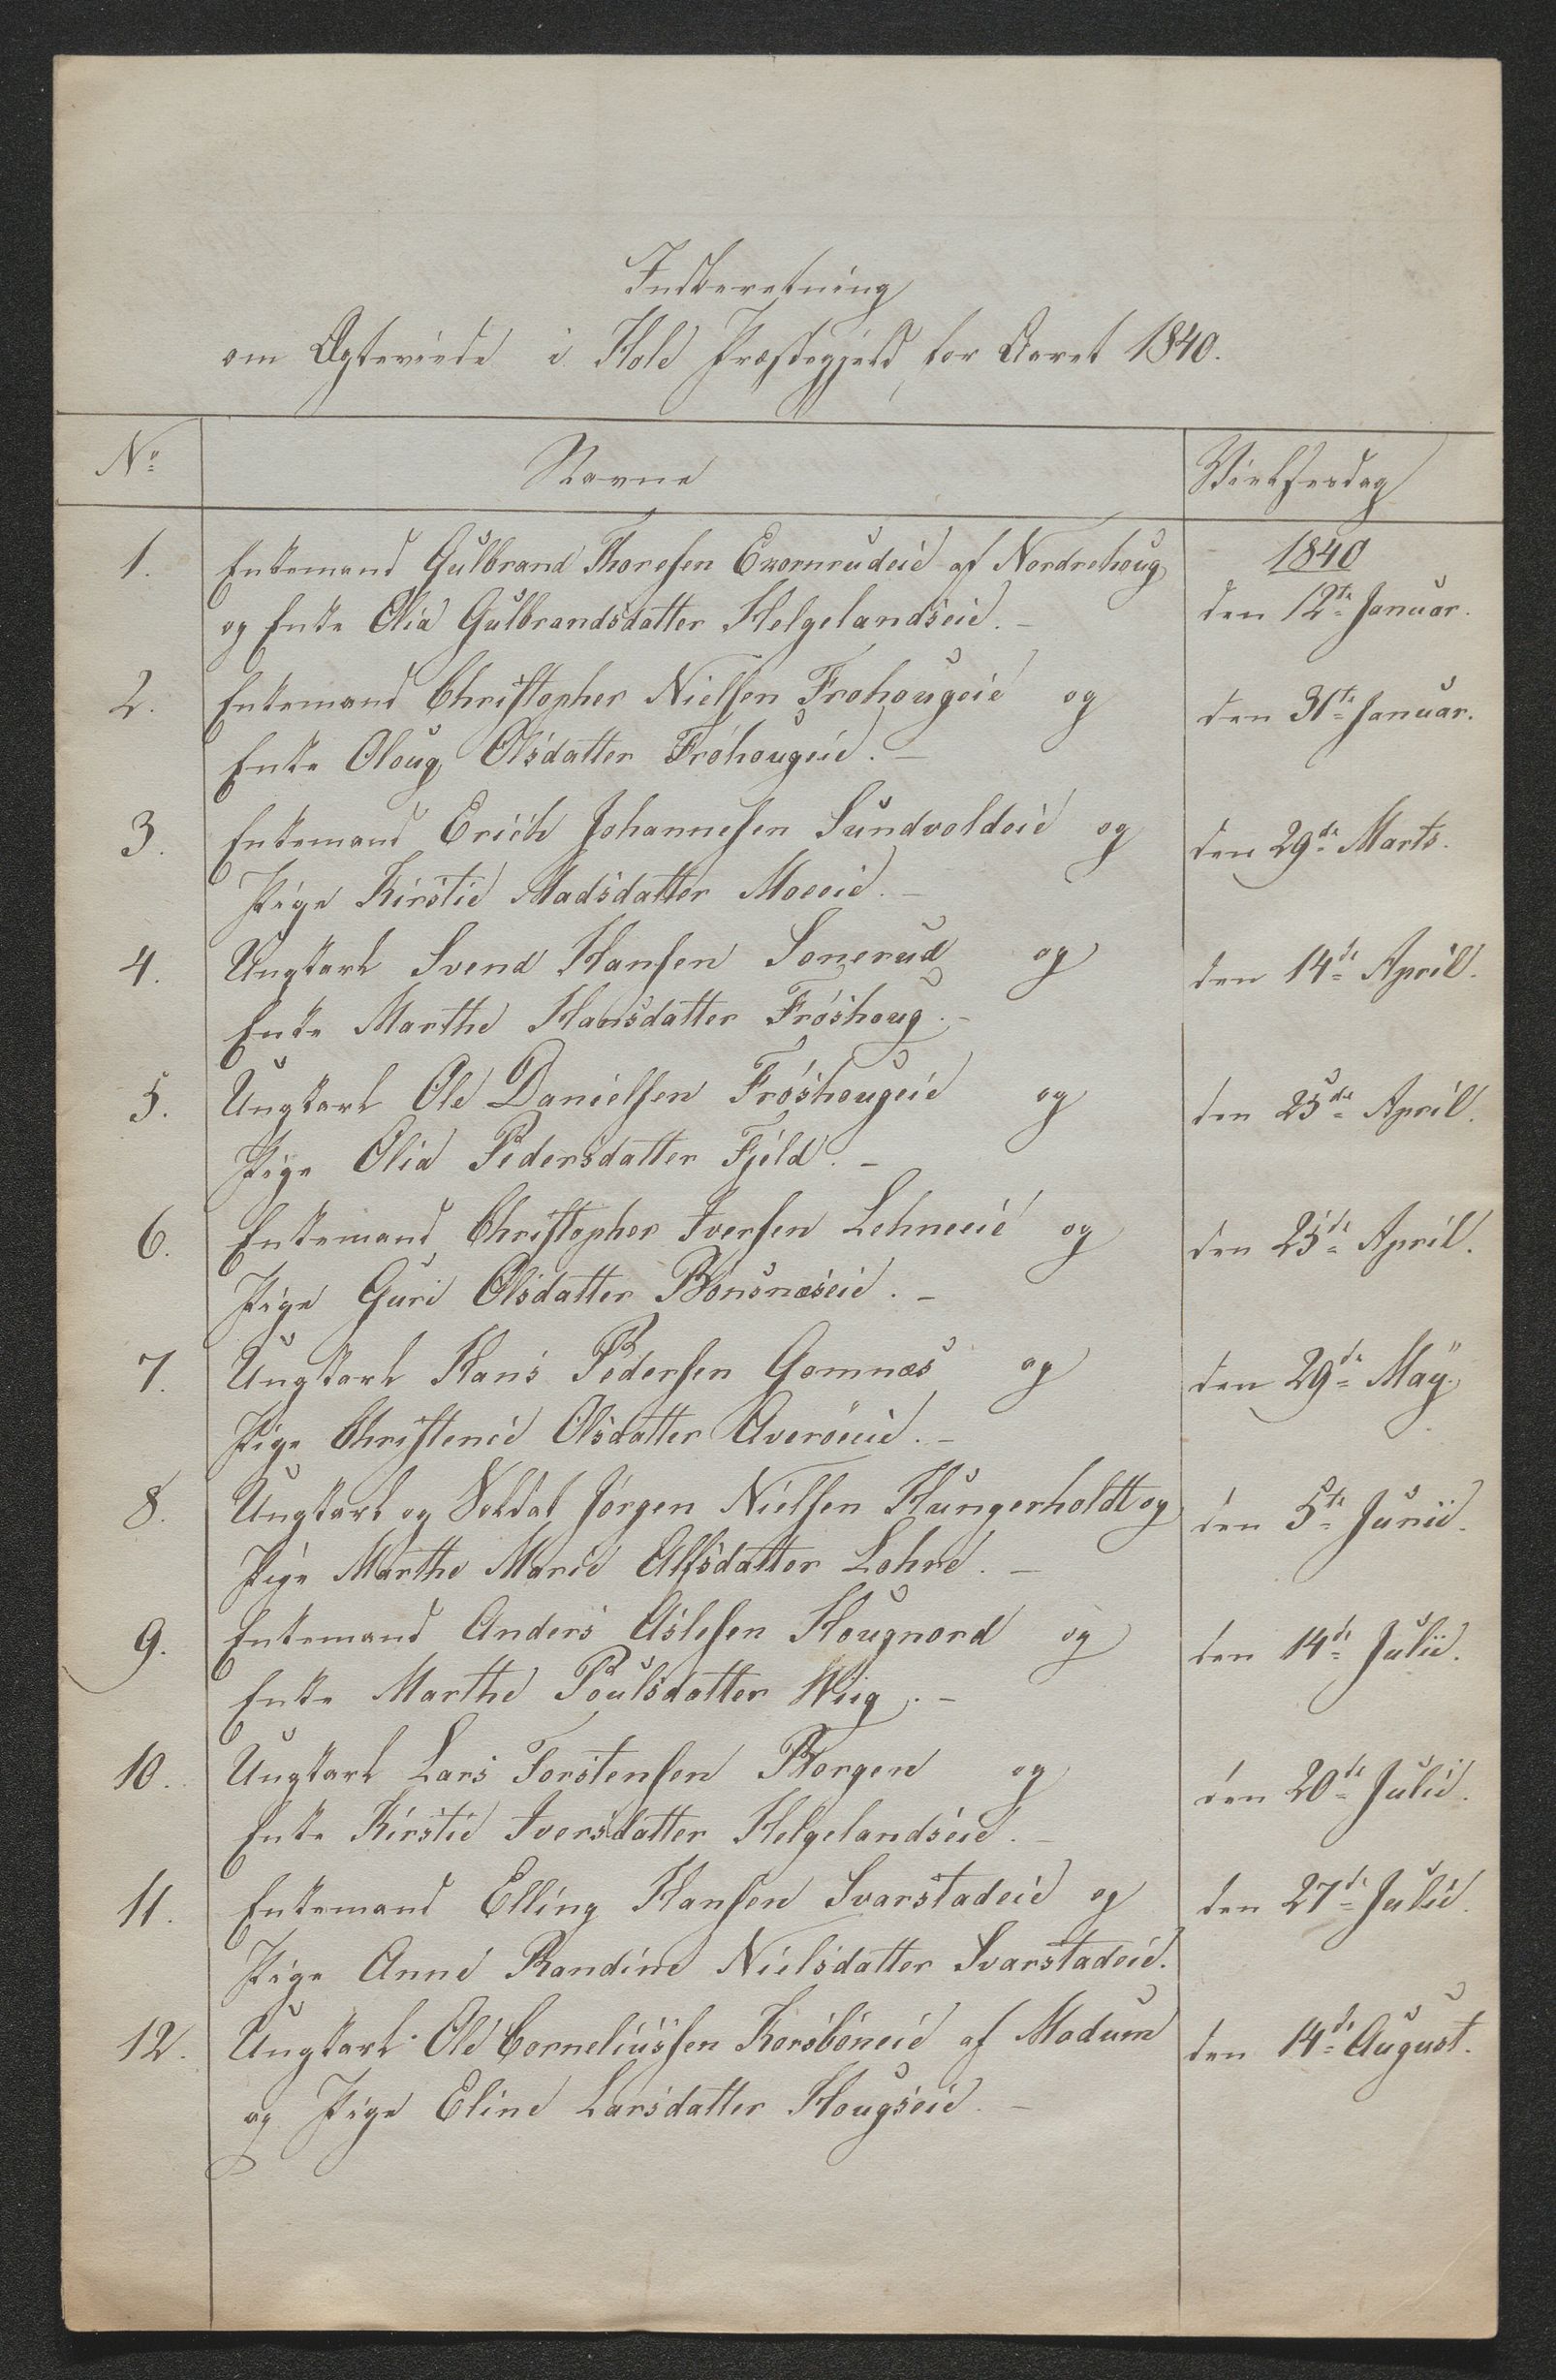 Indberetning
om Ægteviede i Hole Præstegjeld for Aaret 1840.
No Navne Vielsesdag
1. Enkemand Gulbrand Thoresen Exornrudeie af Nordrehoug 1840
og Enke Olia Gulbrandsdatter Helgelandseie. – den 12te Januar.
2. Enkemand Christopher Nielsen Frohougeie og den 31te Januar.
Enke Oloug Olsdatter Fröhougeie. –
3. Enkemand Erich Johannesen Sundvoldeie og den 29de Marts.
Pige Kirstie Madsdatter Moeeie. –
4. Ungkarl Svend Hansen Sonerud og den 14de April.
Enke Marthe Hansdatter Fröshoug. –
5. Ungkarl Ole Danielsen Fröshougeie og den 25de April.
Pige Olia Pedersdatter Fjeld. –
6. Enkemand Christopher Iversen Lehneeie og den 25de April.
Pige Guri Olsdatter Bönsnæseie. –
7. Ungkarl Hans Pedersen Gomnæs og den 29de Maÿ.
Pige Christence Olsdatter Averöeie. –
8. Ungkarl og Soldat Jörgen Nielsen Hungerholdt og den 5te Junii.
Pige Marthe Marie Alfsdatter Lohre. –
9. Enkemand Anders Aslesen Hougnord og den 14de Julii.
Enke Marthe Poulsdatter Wiig. –
10. Ungkarl Lars Torstensen Borgen og den 20de Julii.
Enke Kirstie Iversdatter Helgelandseie. –
11. Enkemand Elling Hansen Svarstadeie og den 27de Julii.
Pige Anne Randine Nielsdatter Svarstadeie.
12. Ungkarl Ole Corneliussen Korsböneie af Modum den 14de August.
og Pige Eline Larsdatter Hougseie. –